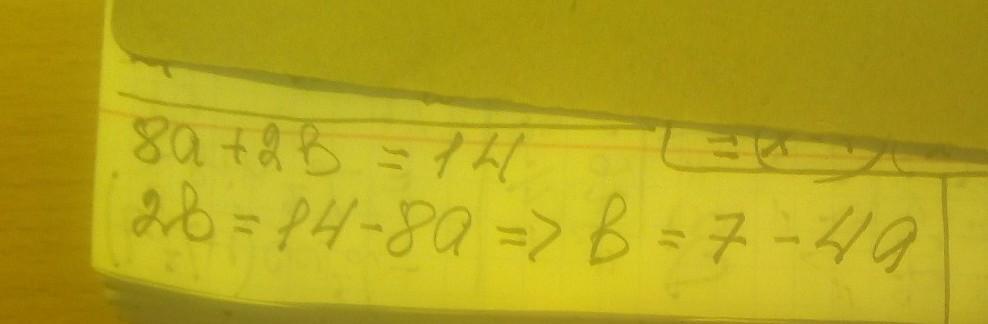 8a+2b = 14
2b = 14-8a => b = 7-4a